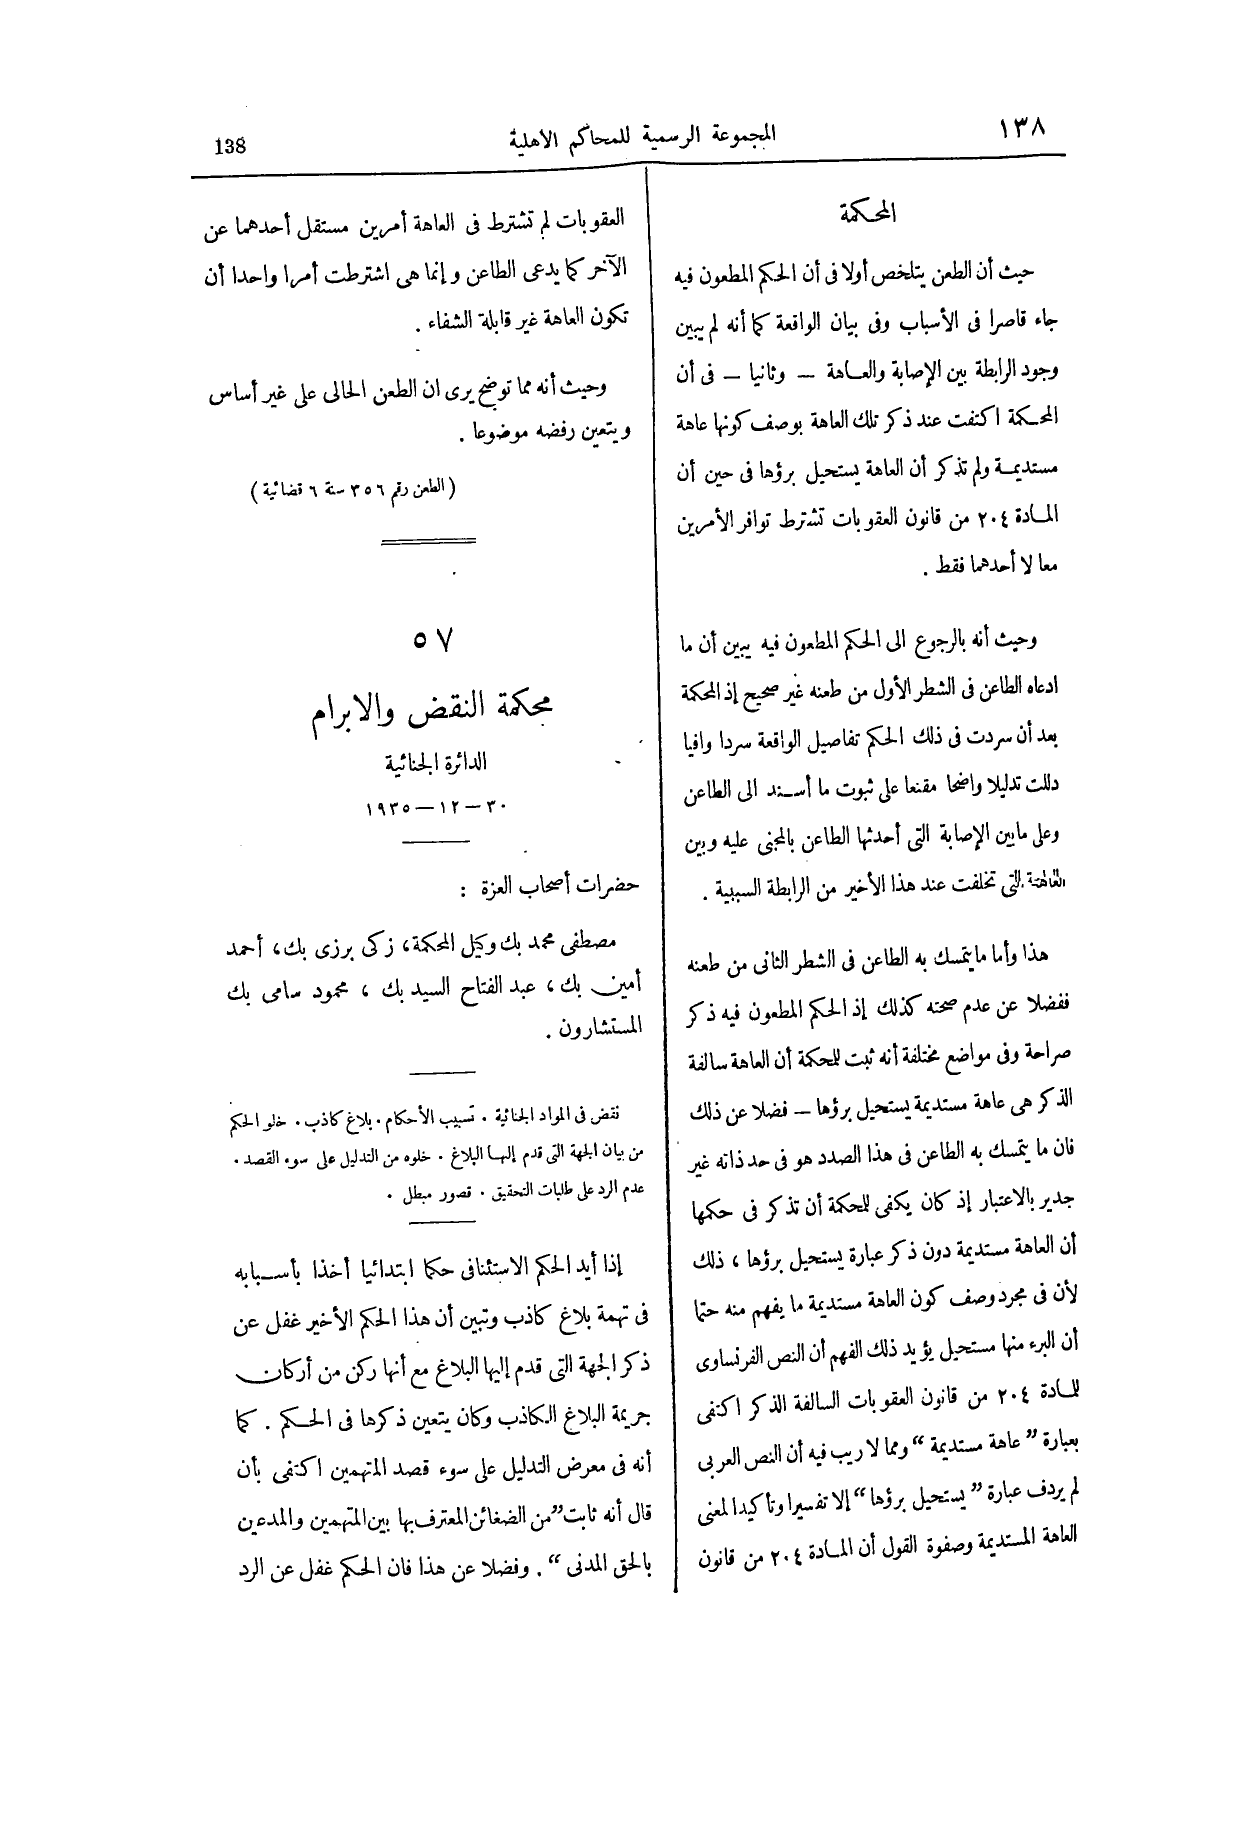 ١٣٨
المجموعة الرسمية للمحاكم الاهلية
138
المحكمة
حيث أن الطعن يتلخص أولا فى أن الحكم المطعون فيه
جاء قاصرا فى الأسباب وفى بيان الواقعة كما أنه لم يبين
وجود الرابطة بين الإصابة والعاهة — وثانيا — فى أن
المحكمة اكتفت عند ذكر تلك العاهة بوصف كونها عاهة
مستديمة ولم تذكر أن العاهة يستحيل برؤها فى حين أن
المادة ٢٠٤ من قانون العقوبات تشترط توافر الأمرين
معا لا أحدهما فقط .
وحيث أنه بالرجوع الى الحكم المطعون فيه يبين أن ما
ادعاه الطاعن فى الشطر الأول من طعنه غير صحيح إذ المحكمة
بعد أن سردت فى ذلك الحكم تفاصيل الواقعة سردا وافيا
دللت تدليلا واضحا مقنعا على ثبوت ما أسند الى الطاعن
وعلى ما بين الإصابة التى أحدثها الطاعن بالمجنى عليه وبين
العاهة التى تخلفت عند هذا الأخير من الرابطة السببية .
هذا وأما ما يتمسك به الطاعن فى الشطر الثانى من طعنه
ففضلا عن عدم صحته كذلك إذ الحكم المطعون فيه ذكر
صراحة وفى مواضع مختلفة أنه ثبت للمحكمة أن العاهة سالفة
الذكر هى عاهة مستديمة يستحيل برؤها — فضلا عن ذلك
فان ما يتمسك به الطاعن فى هذا الصدد هو فى حد ذاته غير
جدير بالاعتبار إذ كان يكفى للمحكمة أن تذكر فى حكمها
أن العاهة مستديمة دون ذكر عبارة يستحيل برؤها ، ذلك
لأن فى مجرد وصف كون العاهة مستديمة ما يفهم منه حتما
أن البرء منها مستحيل يؤيد ذلك الفهم أن النص الفرنساوى
للمادة ٢٠٤ من قانون العقوبات السالفة الذكر اكتفى
بعبارة ” عاهة مستديمة “ ومما لا ريب فيه أن النص العربى
لم يردف عبارة ” يستحيل برؤها “ إلا تفسيرا وتأكيدا لمعنى
العاهة المستديمة وصفوة القول أن المادة ٢٠٤ من قانون
العقوبات لم تشترط فى العاهة أمرين مستقل أحدهما عن
الآخر كما يدعى الطاعن وإنما هى اشترطت أمرا واحدا أن
تكون العاهة غير قابلة الشفاء .
وحيث أنه مما توضح يرى ان الطعن الحالى على غير أساس
ويتعين رفضه موضوعا .
( الطعن رقم ٣٥٦ سنة ٦ قضائية )
٥٧
محكمة النقض والابرام
الدائرة الجنائية
٣٠ — ١٢ — ١٩٣٥
حضرات أصحاب العزة :
مصطفى محمد بك وكيل المحكمة، زكى برزى بك، أحمد
أمين بك ، عبد الفتاح السيد بك ، محمود سامى بك
المستشارون .
نقض فى المواد الجنائية . تسبيب الأحكام . بلاغ كاذب . خلو الحكم
من بيان الجهة التى قدم إليها البلاغ . خلوه من التدليل على سوء القصد .
عدم الرد على طلبات التحقيق . قصور مبطل .
إذا أيد الحكم الاستئنافى حكما ابتدائيا أخذا بأسبابه
فى تهمة بلاغ كاذب وتبين أن هذا الحكم الأخير غفل عن
ذكر الجهة التى قدم إليها البلاغ مع أنها ركن من أركان
جريمة البلاغ الكاذب وكان يتعين ذكرها فى الحكم . كما
أنه فى معرض التدليل على سوء قصد المتهمين اكتفى بأن
قال أنه ثابت ”من الضغائن المعترف بها بين المتهمين والمدعين
بالحق المدنى “ . وفضلا عن هذا فان الحكم غفل عن الرد